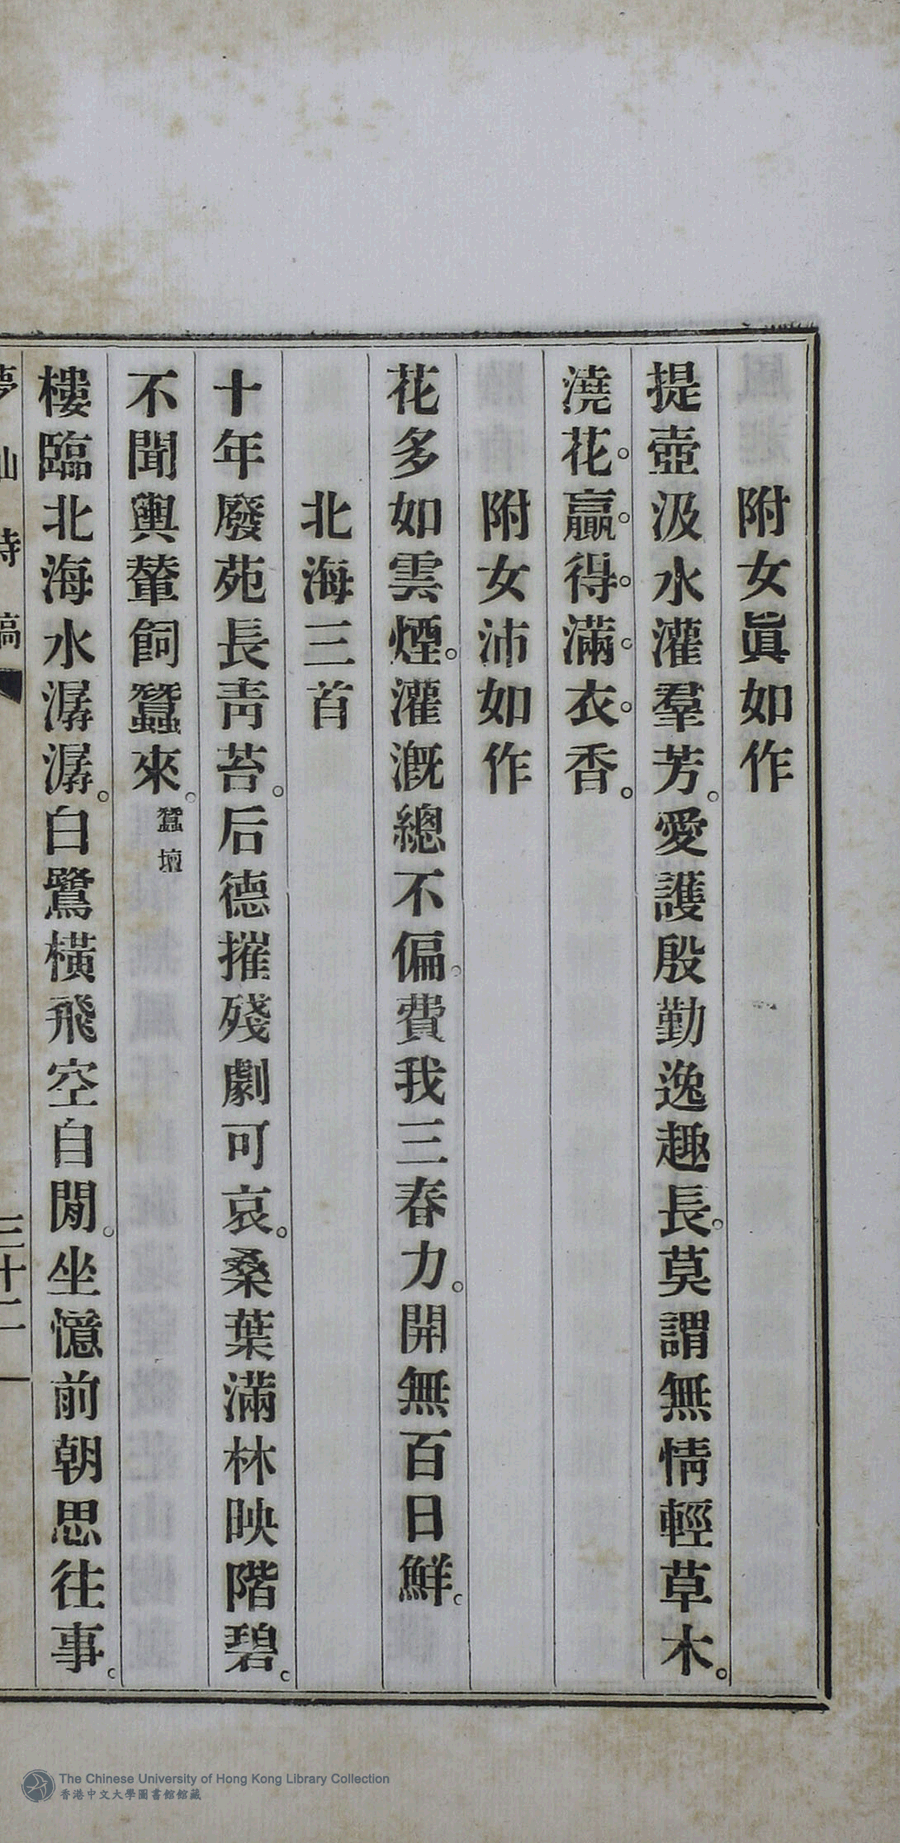 附女眞如作
提壺汲水灌羣芳。愛護殷勤逸趣長。莫謂無情輕草木。
澆花。贏。得。滿。衣。香。
附女沛如作
花多如雲煙。灌漑總不偏。費我三春力。開無百日鮮。
北海三首
十年廢苑長靑苔。后德摧殘劇可哀。桑葉滿林映階碧。
不聞輿輦飼蠶來。蠶壇
樓臨北海水潺潺。白鷺橫飛空自閒。坐憶前朝思往事。
夢仙詩稿 三十二
The Chinese University of Hong Kong Library Collection
香港中文大學圖書館館藏